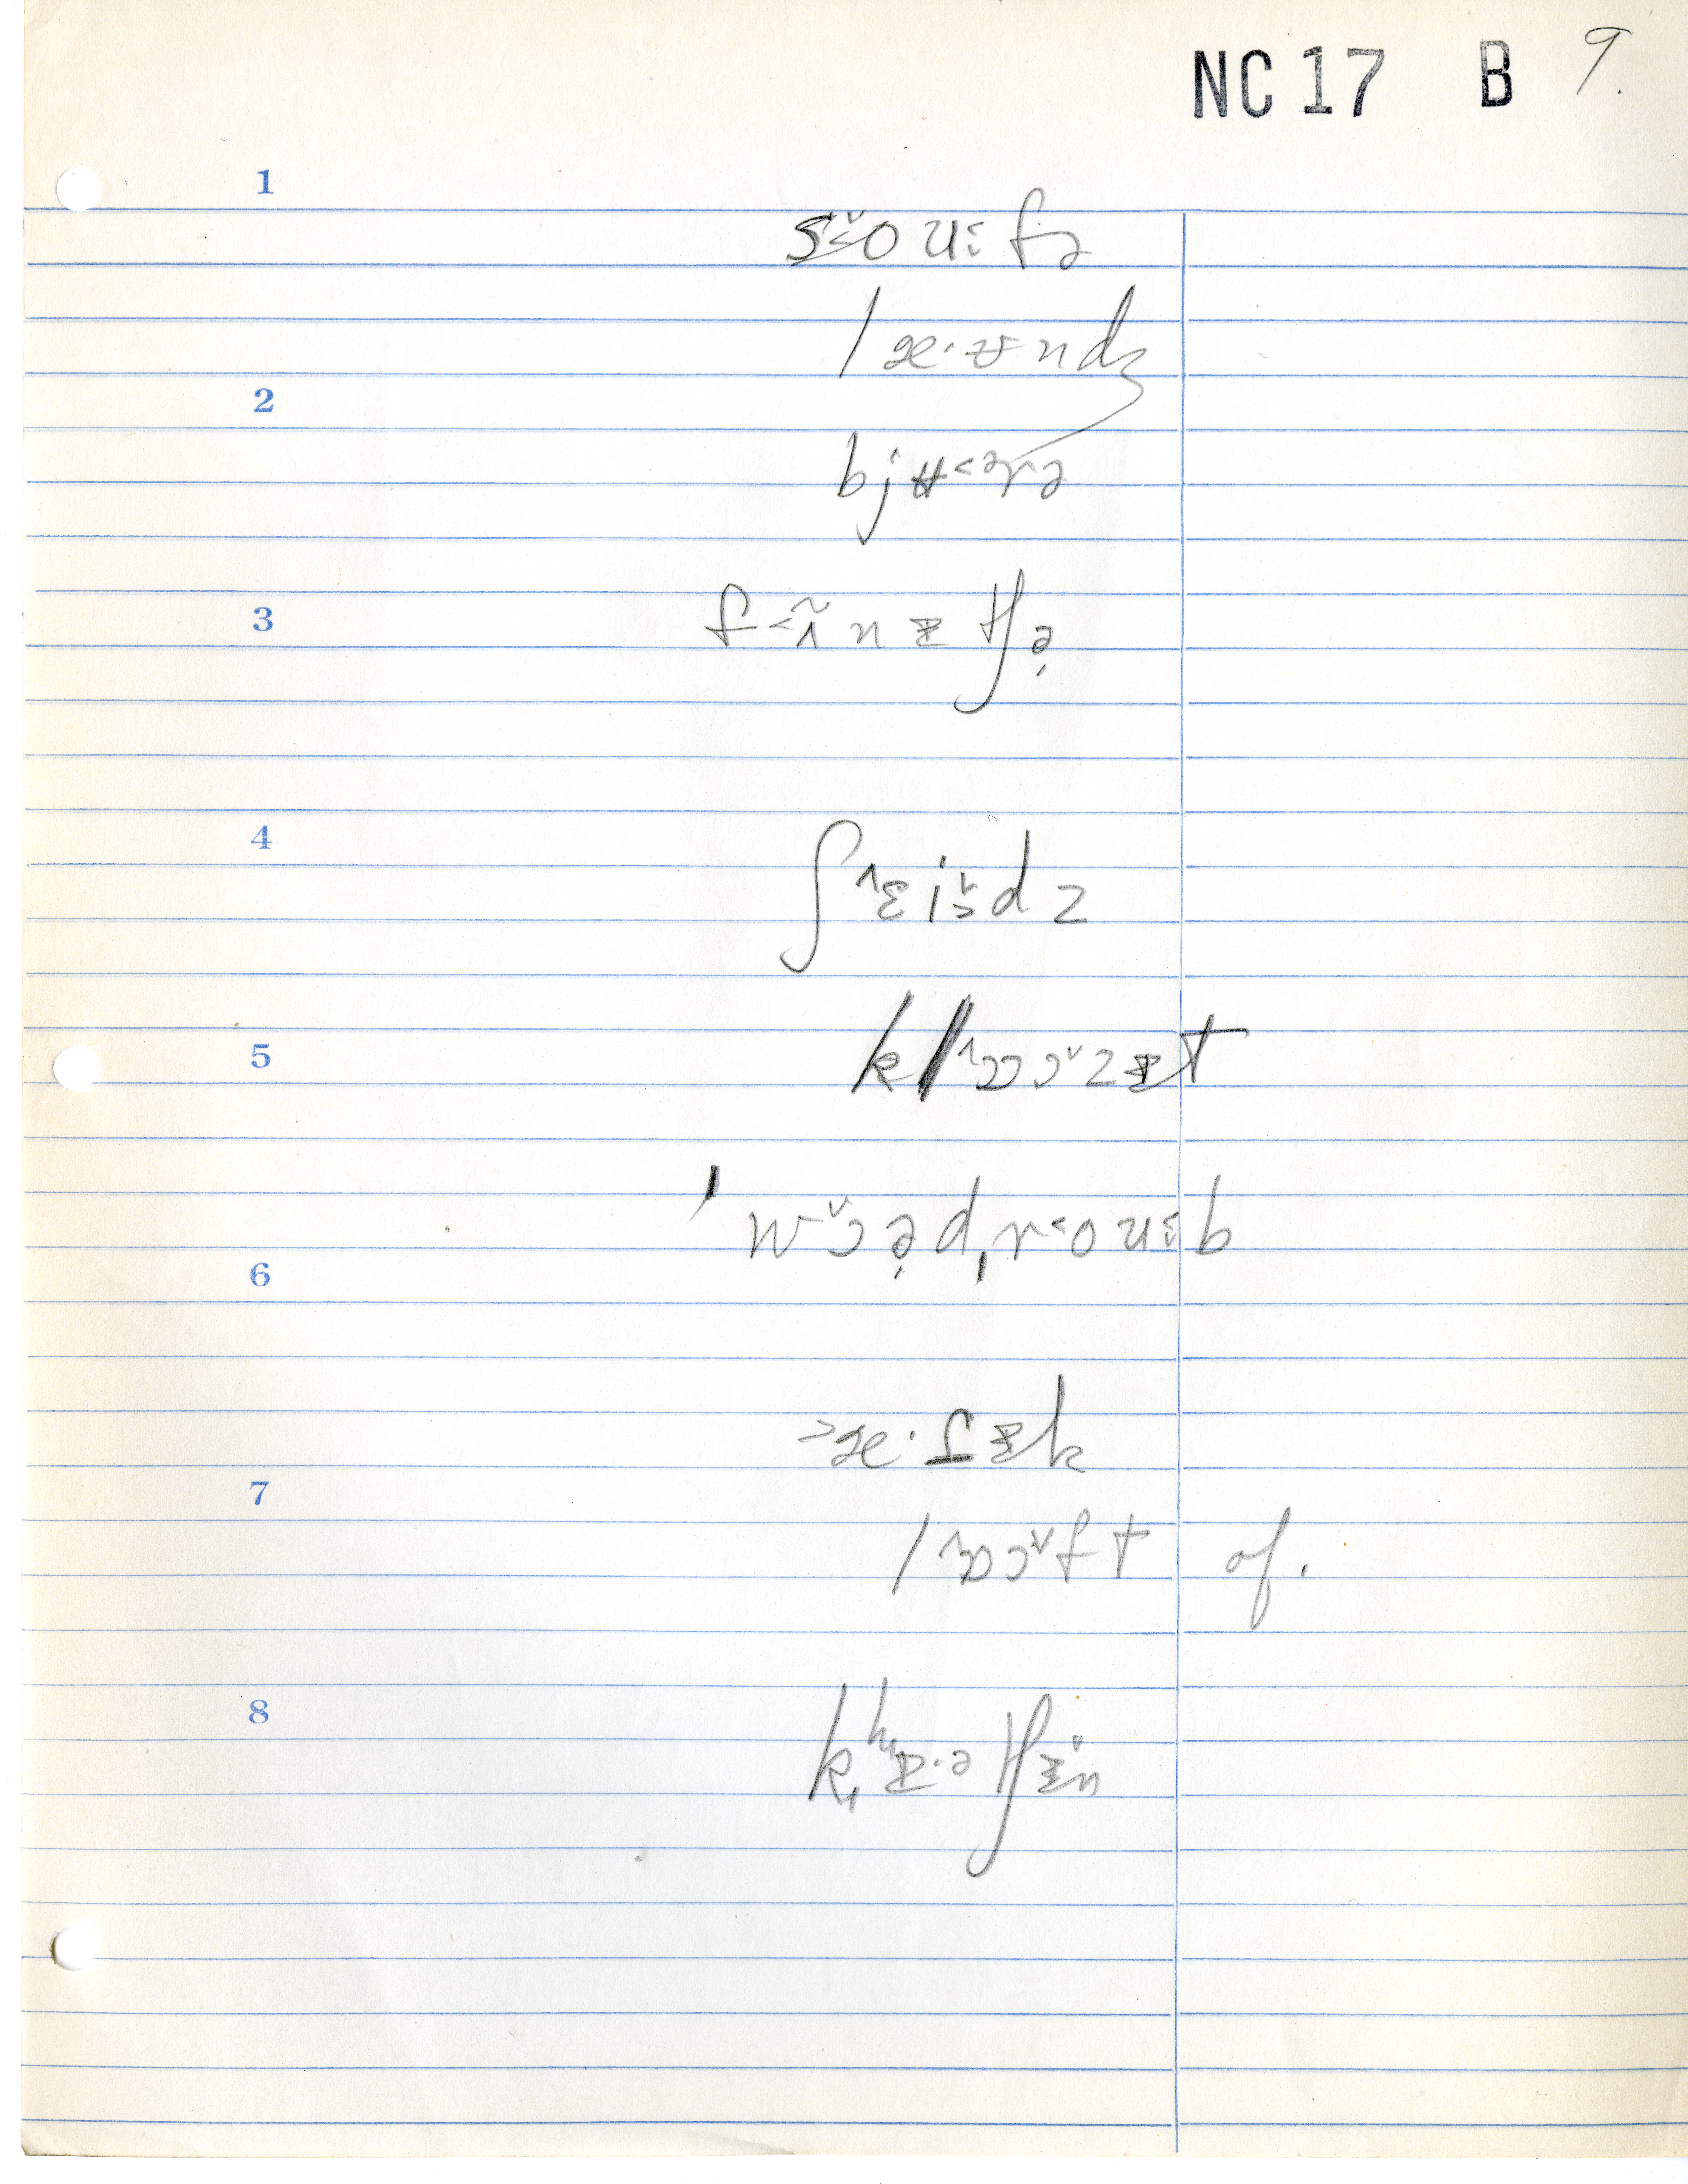 NC 17 B 9.
1
s˅˂ou˂fə
læ·ʊndʒ
2
bjʉ˂ərə
3
f˂ɪ̃nɪtʃə̦
4
ʃ˄ɛi˅ɔdz
kl˄ɒɔ˅zɨt
5
ˈw˅ɔə̦dˌr˂ou˂b
6
˃æ·fɨk
7
l˄ɒɔ˅ft of.
8
kʰɪ·ətʃɨn